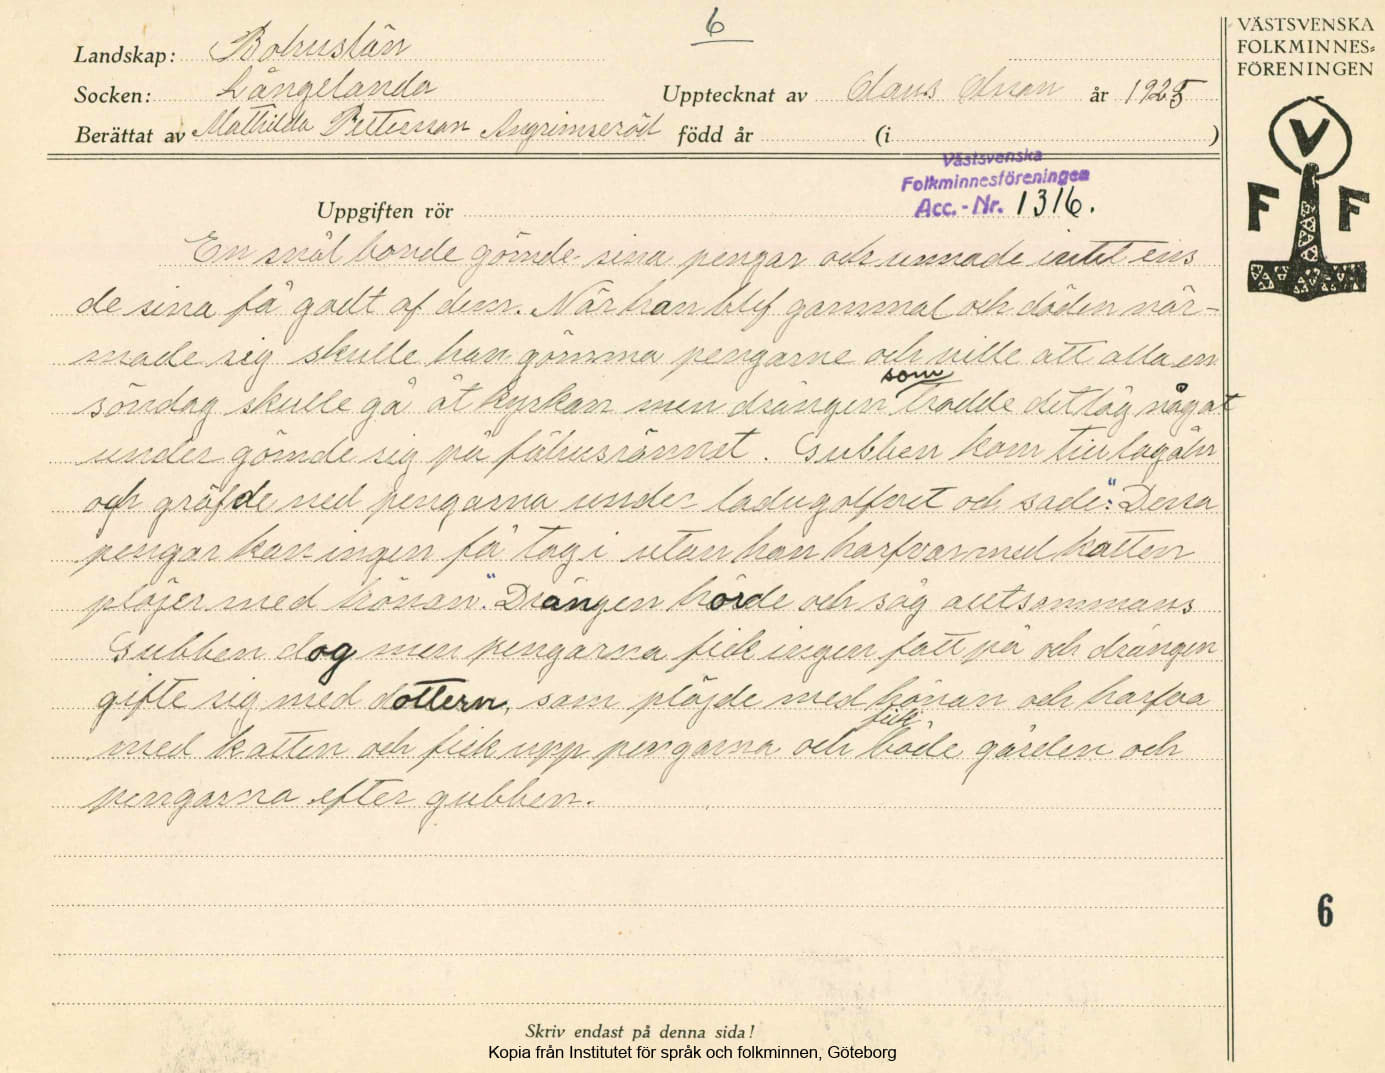 6
Landskap: Bohuslän
Socken: Långelanda
Upptecknat av Claus Olsson år 1925
Berättat av Mathilda Petterson Angrimseröd född år (i )
VÄSTSVENSKA
FOLKMINNES=
FÖRENINGEN
V
F F
Västsvenska
Folkminnesföreningen
Acc.-Nr. 1316.
Uppgiften rör
En snål bonde gömde sina pengar och unnade intet ens
de sina få godt af dem. När han blef gammal och döden när-
made sig skulle han gömma pengarne och ville att alla en
söndag skulle gå åt kyrkan men drängen som trodde det låg något
under gömde sig på fähusrännet. Gubben kom till lagåln
och gräfde ned pengarna under ladugolfvet och sade: "Dessa
pengar kan ingen få tag i utan han harfvar med katten
plöjer med hönan". Drängen hörde och såg alltsammans
Gubben dog men pengarna fick ingen fatt på och drängen
gifte sig med dottern, som plöjde med hönan och harfva
med katten och fick upp pengarna och fick både gården och
pengarna efter gubben.
6
Skriv endast på denna sida!
Kopia från Institutet för språk och folkminnen, Göteborg